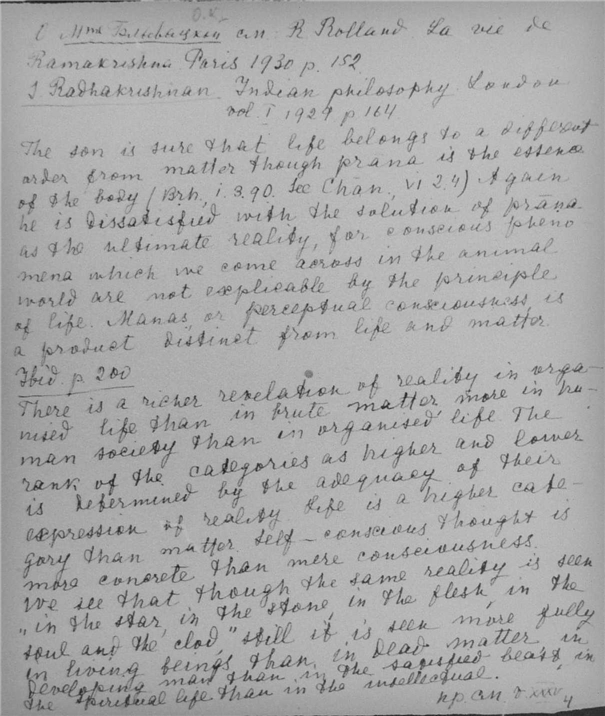 О Mme Блавацкой см. R Rolland La vie de
Ramakrishna Paris 1930 p. 152.
S Radhakrishnan Indian philosophy London
vol I 1929 p 164
The son is sure that life belongs to a different
order from matter though prāna is the essence
of the body (Brh, i. 3.90. See Chān, VI 2.4) Again
he is dissatisfied with the solution of prāna
as the ultimate reality, for conscious pheno-
mena which we come across in the animal
world are not explicable by the principle
of life. Manas or perceptual consciousness is
a product distinct from life and matter
Ibid. p 200
There is a richer revelation of reality in orga-
nised life than in brute matter more in hu-
man society than in organised life The
rank of the categories as higher and lower
is determined by the adequacy of their
expression of reality Life is a higher cate-
gory than matter Self-conscious thought is
more concrete than mere consciousness.
We see that though the same reality is seen
„in the star, in the stone, in the flesh, in the
soul and the clod," still it is seen more fully
in living beings than, in dead matter, in
developing man than in the satisfied beast, in
the spiritual life than in the intellectual.